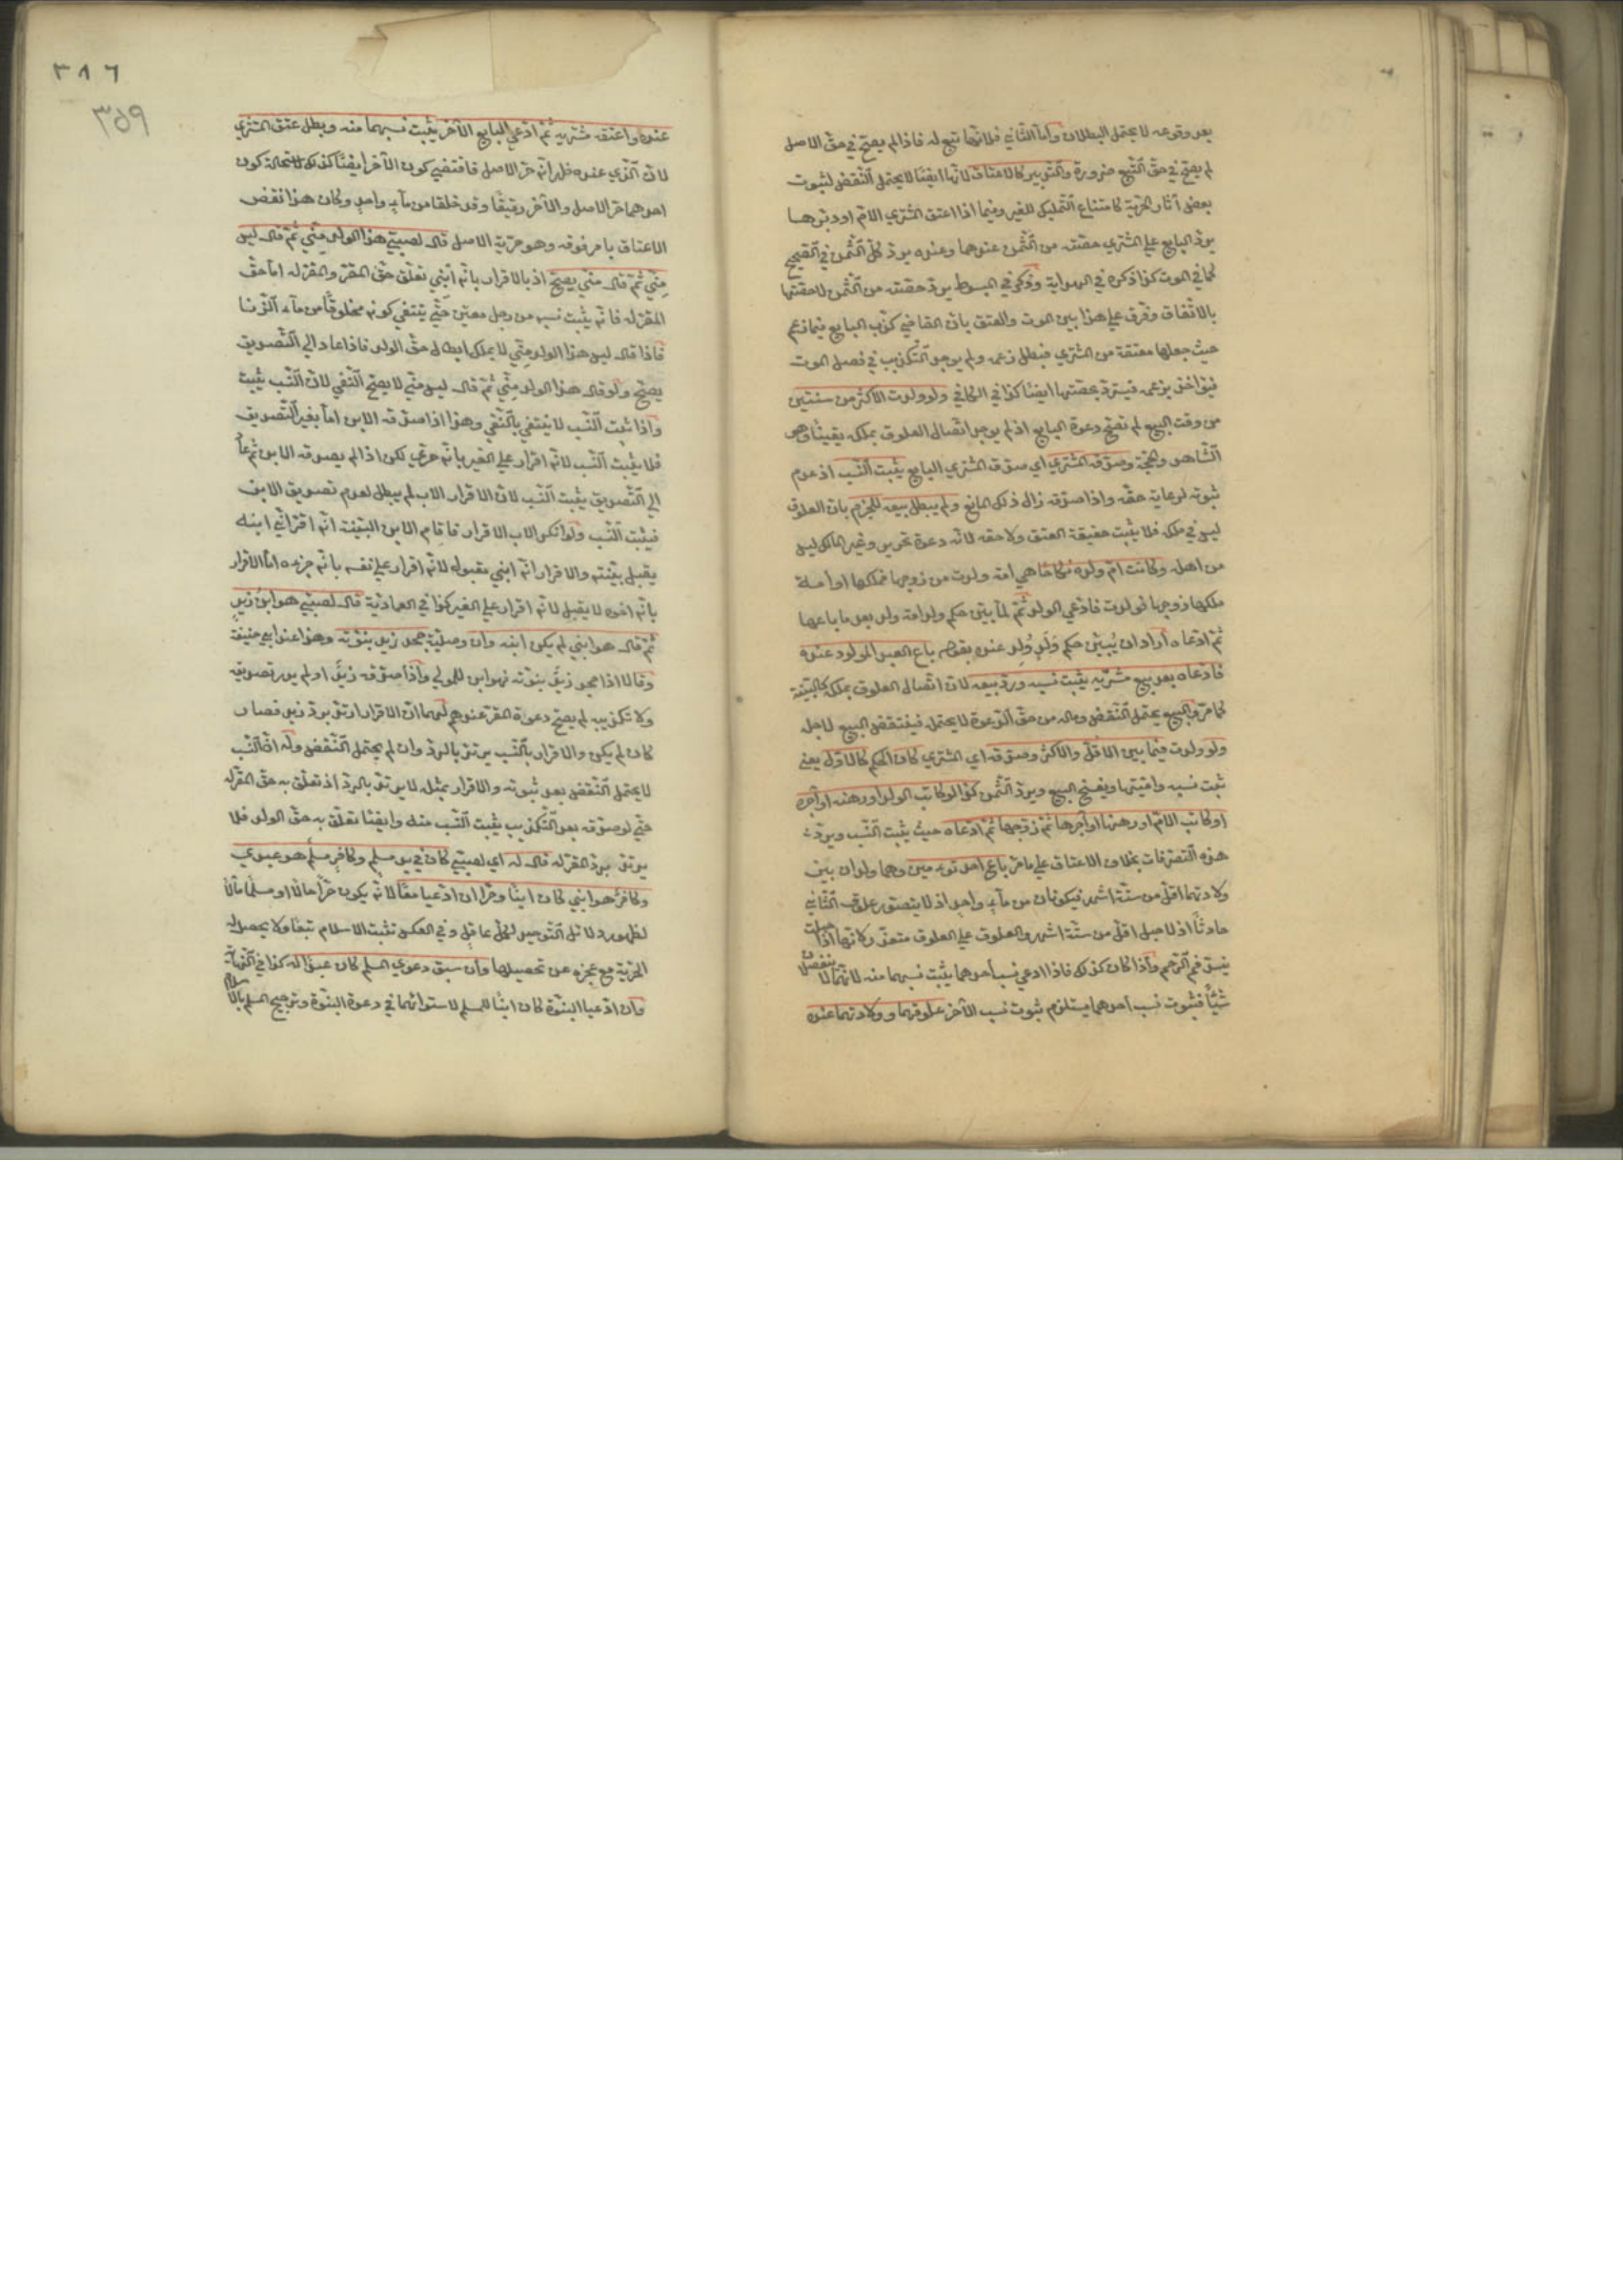 بعد وقوعه لا يحتمل البطلان وأما الثاني فلانها تبع له فاذا لم يصح في حق الاصل
لم يصح في حق التبع ضرورة والتدبير كالاعتاق لانه ايضا لا يحتمل النقض لثبوت
بعض آثار الحرية كامتناع التمليك للغير وفيما اذا اعتق المشتري الام او دبرها
يرد البايع على المشتري حصته من الثمن عندهما وعنده يرد كل الثمن في الصحيح
كما في الموت كذا ذكره في الهداية وذكر في المبسوط يرد حصته من الثمن لا حصتها
بالاتفاق وفرق على هذا بين الموت والعتق بان القاضي كذب البايع فيما زعم
حيث جعلها معتقة من المشتري فبطل زعمه ولم يوجد التكذيب في فصل الموت
فيؤاخذ بزعمه فيسترد بحصتها ايضا كذا في الكافي ولو ولدت لاكثر من سنتين
من وقت البيع لم تصح دعوة البايع اذ لم يوجد اتصال العلوق بملكه يقينا وهو
الشاهد والحجة وصدقه المشتري اي صدق المشتري البايع يثبت النسب اذ عدم
ثبوته لرعاية حقه واذا صدقه زال ذلك المانع ولم يبطل بيعه للجزم بان العلوق
ليس في ملكه فلا يثبت حقيقة العتق ولا حقه لانه دعوة تحرير وغير المالك ليس
من اهله وكانت ام ولده نكاحا هي امة ولدت من زوجها فملكها او امة
ملكها زوجها فولدت فادعى الولد ثم لما بين حكم ولد امة ولد بعد ما باعها
ثم ادعاه أراد ان يبين حكم ولد ولد عنده بقوله باع العبد المولود عنده
فادعاه بعد بيع مشتريه يثبت نسبه ورد بيعه لان اتصال العلوق بملكه كالبينة
كما مر والبيع يحتمل النقض وماله من حق الدعوة لا يحتمله فينتقض البيع لاجله
ولو ولدت فيما بين الاقل والاكثر وصدقه اي المشتري كان الحكم كالاول يعني
ثبت نسبه واميتها ويفسخ البيع ويرد الثمن كذا لو كاتب الولد او رهنه او آجره
او كاتب الام او رهنها او آجرها ثم زوجها ثم ادعاه حيث يثبت النسب ويرد
هذه التصرفات بخلاف الاعتاق على ما مر باع احد توءمين وهما ولدان بين
ولادتهما اقل من ستة اشهر فيكونان من ماء واحد اذ لا يتصور علوق الثاني
حادثا اذ لا حبل اقل من ستة اشهر والعلوق على العلوق متعذر لانها اذا حبلت
ينسد فم الرحم واذا كان كذلك فاذا ادعى نسب أحدهما يثبت نسبهما منه لانهما لا ينفصلان
شيئا فثبوت نسب احدهما يستلزم ثبوت نسب الآخر علوقهما وولادتهما عنده
٣٨٦
٣٥٩
عنده واعتقه مشتريه ثم ادعى البايع الآخر يثبت نسبهما منه وبطل عتق المشتري
لان الذي عنده ظهر انه حر الاصل فاقتضى كون الآخر ايضا كذلك لاستحالة كون
احدهما حر الاصل والآخر رقيقا وقد خلقا من ماء واحد وكان هذا نقض
الاعتاق بامر فوقه وهو حرية الاصل قال لصبي هذا الولد مني ثم قال ليس
مني ثم قال مني يصح اذ بالاقرار بانه ابني تعلق حق المقر والمقر له اما حق
المقر له فانه يثبت نسبه من رجل معين حتى ينتفي كونه مخلوقا من ماء الزنا
فاذا قال ليس هذا الولد مني لا يملك ابطال حق الولد فاذا عاد الى التصديق
يصح ولو قال هذا الولد مني ثم قال ليس مني لا يصح النفي لان النسب يثبت
واذا ثبت النسب لا ينتفي بالنفي وهذا اذا صدقه الابن اما بغير التصديق
فلا يثبت النسب لانه اقرار على الغير بانه جزئي لكن اذا لم يصدقه الابن ثم عاد
الى التصديق يثبت النسب لان الاقرار الاب لم يبطل لعدم تصديق الابن
فيثبت النسب ولو انكر الاب الاقرار فاقام الابن البينة انه اقر اني ابنه
يقبل بينته والاقرار انه ابني مقبول لانه اقرار على نفسه بانه جزءه اما الاقرار
بانه اخوه لا يقبل لانه اقرار على الغير كذا في العمادية قال لصبي هو ابن زيد
ثم قال هو ابني لم يكن ابنه وان وصلية جحد زيد بنوته وهذا عند ابي حنيفة
وقالا اذا جحد زيد بنوته فهو ابن للمولى واذا صدقه زيد او لم يدر تصديقه
ولا تكذيبه لم يصح دعوة المقر عندهم لهما ان الاقرار ارتد برد زيد فصار
كان لم يكن والاقرار بالنسب يرتد بالرد وان لم يحتمل النقض وله ان النسب
لا يحتمل النقض بعد ثبوته والاقرار بمثله لا يرتد بالرد اذ تعلق به حق المقر له
حتى لو صدقه بعد التكذيب يثبت النسب منه وايضا تعلق به حق الولد فلا
يرتد برد المقر له قال له اي لصبي كان في يد مسلم وكافر مسلم هو عبدي
وكافر هو ابني كان ابنا وحرا ان ادعيا معا لانه يكون حرا حالا او مسلما مآلا
لظهور دلائل التوحيد لكل عاقل وفي العكس تثبت الاسلام تبعا ولا يحصل له
الحرية مع عجزه عن تحصيلها وان سبق دعوى المسلم كان عبدا له كذا في النهاية
وان ادعيا البنوة كان ابنا للمسلم لاستوائهما في دعوة البنوة وترجيح المسلم بالاسلام